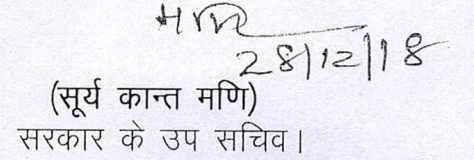 मणि
28/12/18
(सूर्य कान्त मणि)
सरकार के उप सचिव।